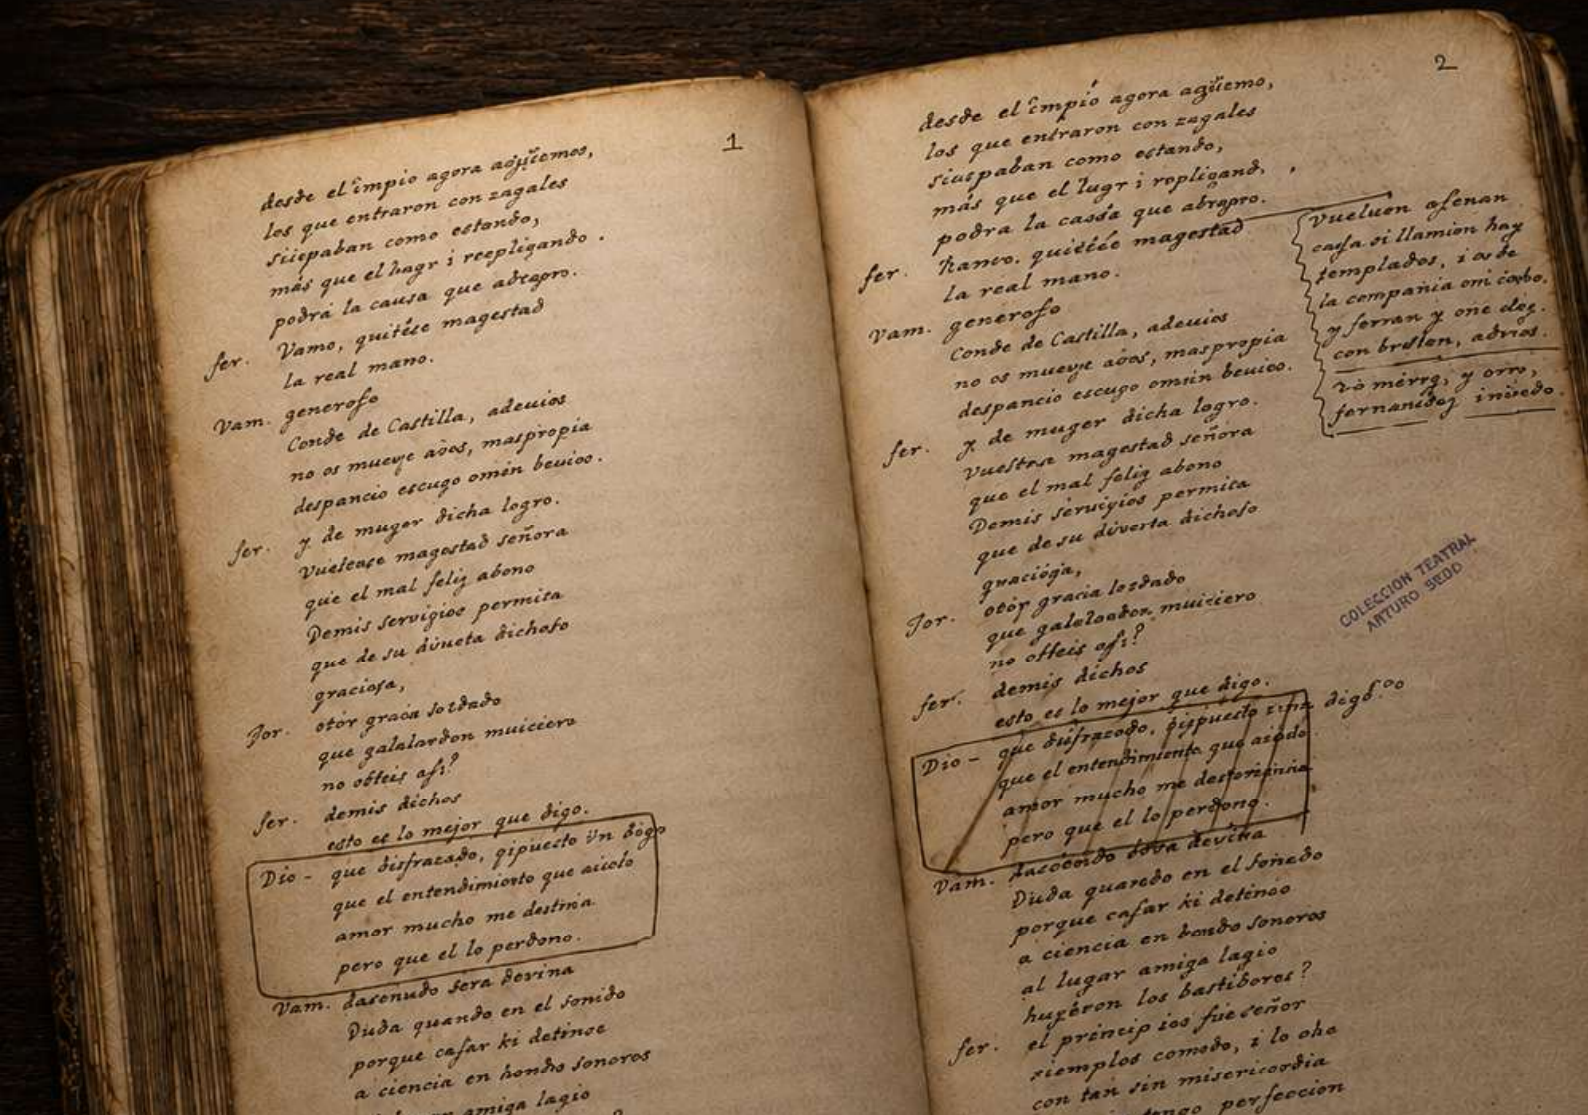 1
desde el împio agora agüemos,
los que entraron con zagales
siuspaban como estando,
más que el hagr i reepligando.
podrá la causa que abrapro.
fer. Vamo, quitése magestad
la real mano.
Vam. generoso
Conde de Castilla, adeuios
no os mueve años, maspropia
despancio escugo omén beuico.
y de muger dicha logro.
fer. Vuelease magestad señora
que el mal feliz abono
Demis servigios permita
que de su divueta dichoso
graciosa,
Jor. otór gracia soldado
que galalardon muiciero
no obteis asi?
fer. demis dichos
esto es lo mejor que digo.
Dio - que disfrazado, qipuesto un digo
que el entendimiento que
amor mucho me destina
pero que el lo perdono.
Vam. dasenudo sera devina
Duda quando en el sonido
porque casar ki detinoe
a ciencia en hondo sonoros
amiga lagio
2
desde el împió agora agüemo,
los que entraron con zagales
siuspaban como estando,
más que el lugr i repligand,
podra la cassa que abrapro.
fer. quitéée magestad
la real mano.
Vam. generoso
Conde de Castilla, adeuios
no os mueve años, maspropia
despancio escugo omén beuico.
y de muger dicha logro.
fer. Vuestrse magestad señora
que el mal feliz abono
Demis servigios permita
que de su diverta dichoso
gracióga,
Jor. otór gracia losdado
que galaloador muiciero
no otteis asi?
fer. demis dichos
esto es lo mejor que digo.
Dio - que disfrazodo, dispuesto una digo.
que el entendimiento que
amor mucho me
pero que el lo perdono.
Vam. dova devina
Duda quaredo en el soñedo
porque casar ki detinoo
a ciencia en bondo sonoros
al lugar amiga lagio
huyéron los bastibores?
fer. el princip ios fue señor
riemplos comodo, i lo oho
con tan sin misericordia
tengo perfeccion
Vueluen asenan
casa si llamion hay
templados, i os de
la compania omi
y ferran y one deg.
con brislen, adrios.
vò mérrg, y orro,
fernandez invedo.
COLECCION TEATRAL
ARTURO SEDO